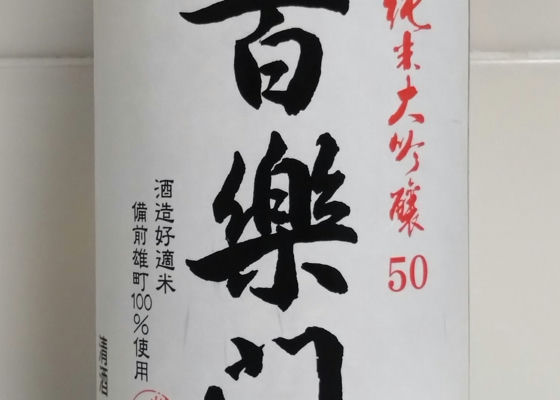 純米大吟醸50
百楽门
酒造好適米
備前雄町100%使用
清酒